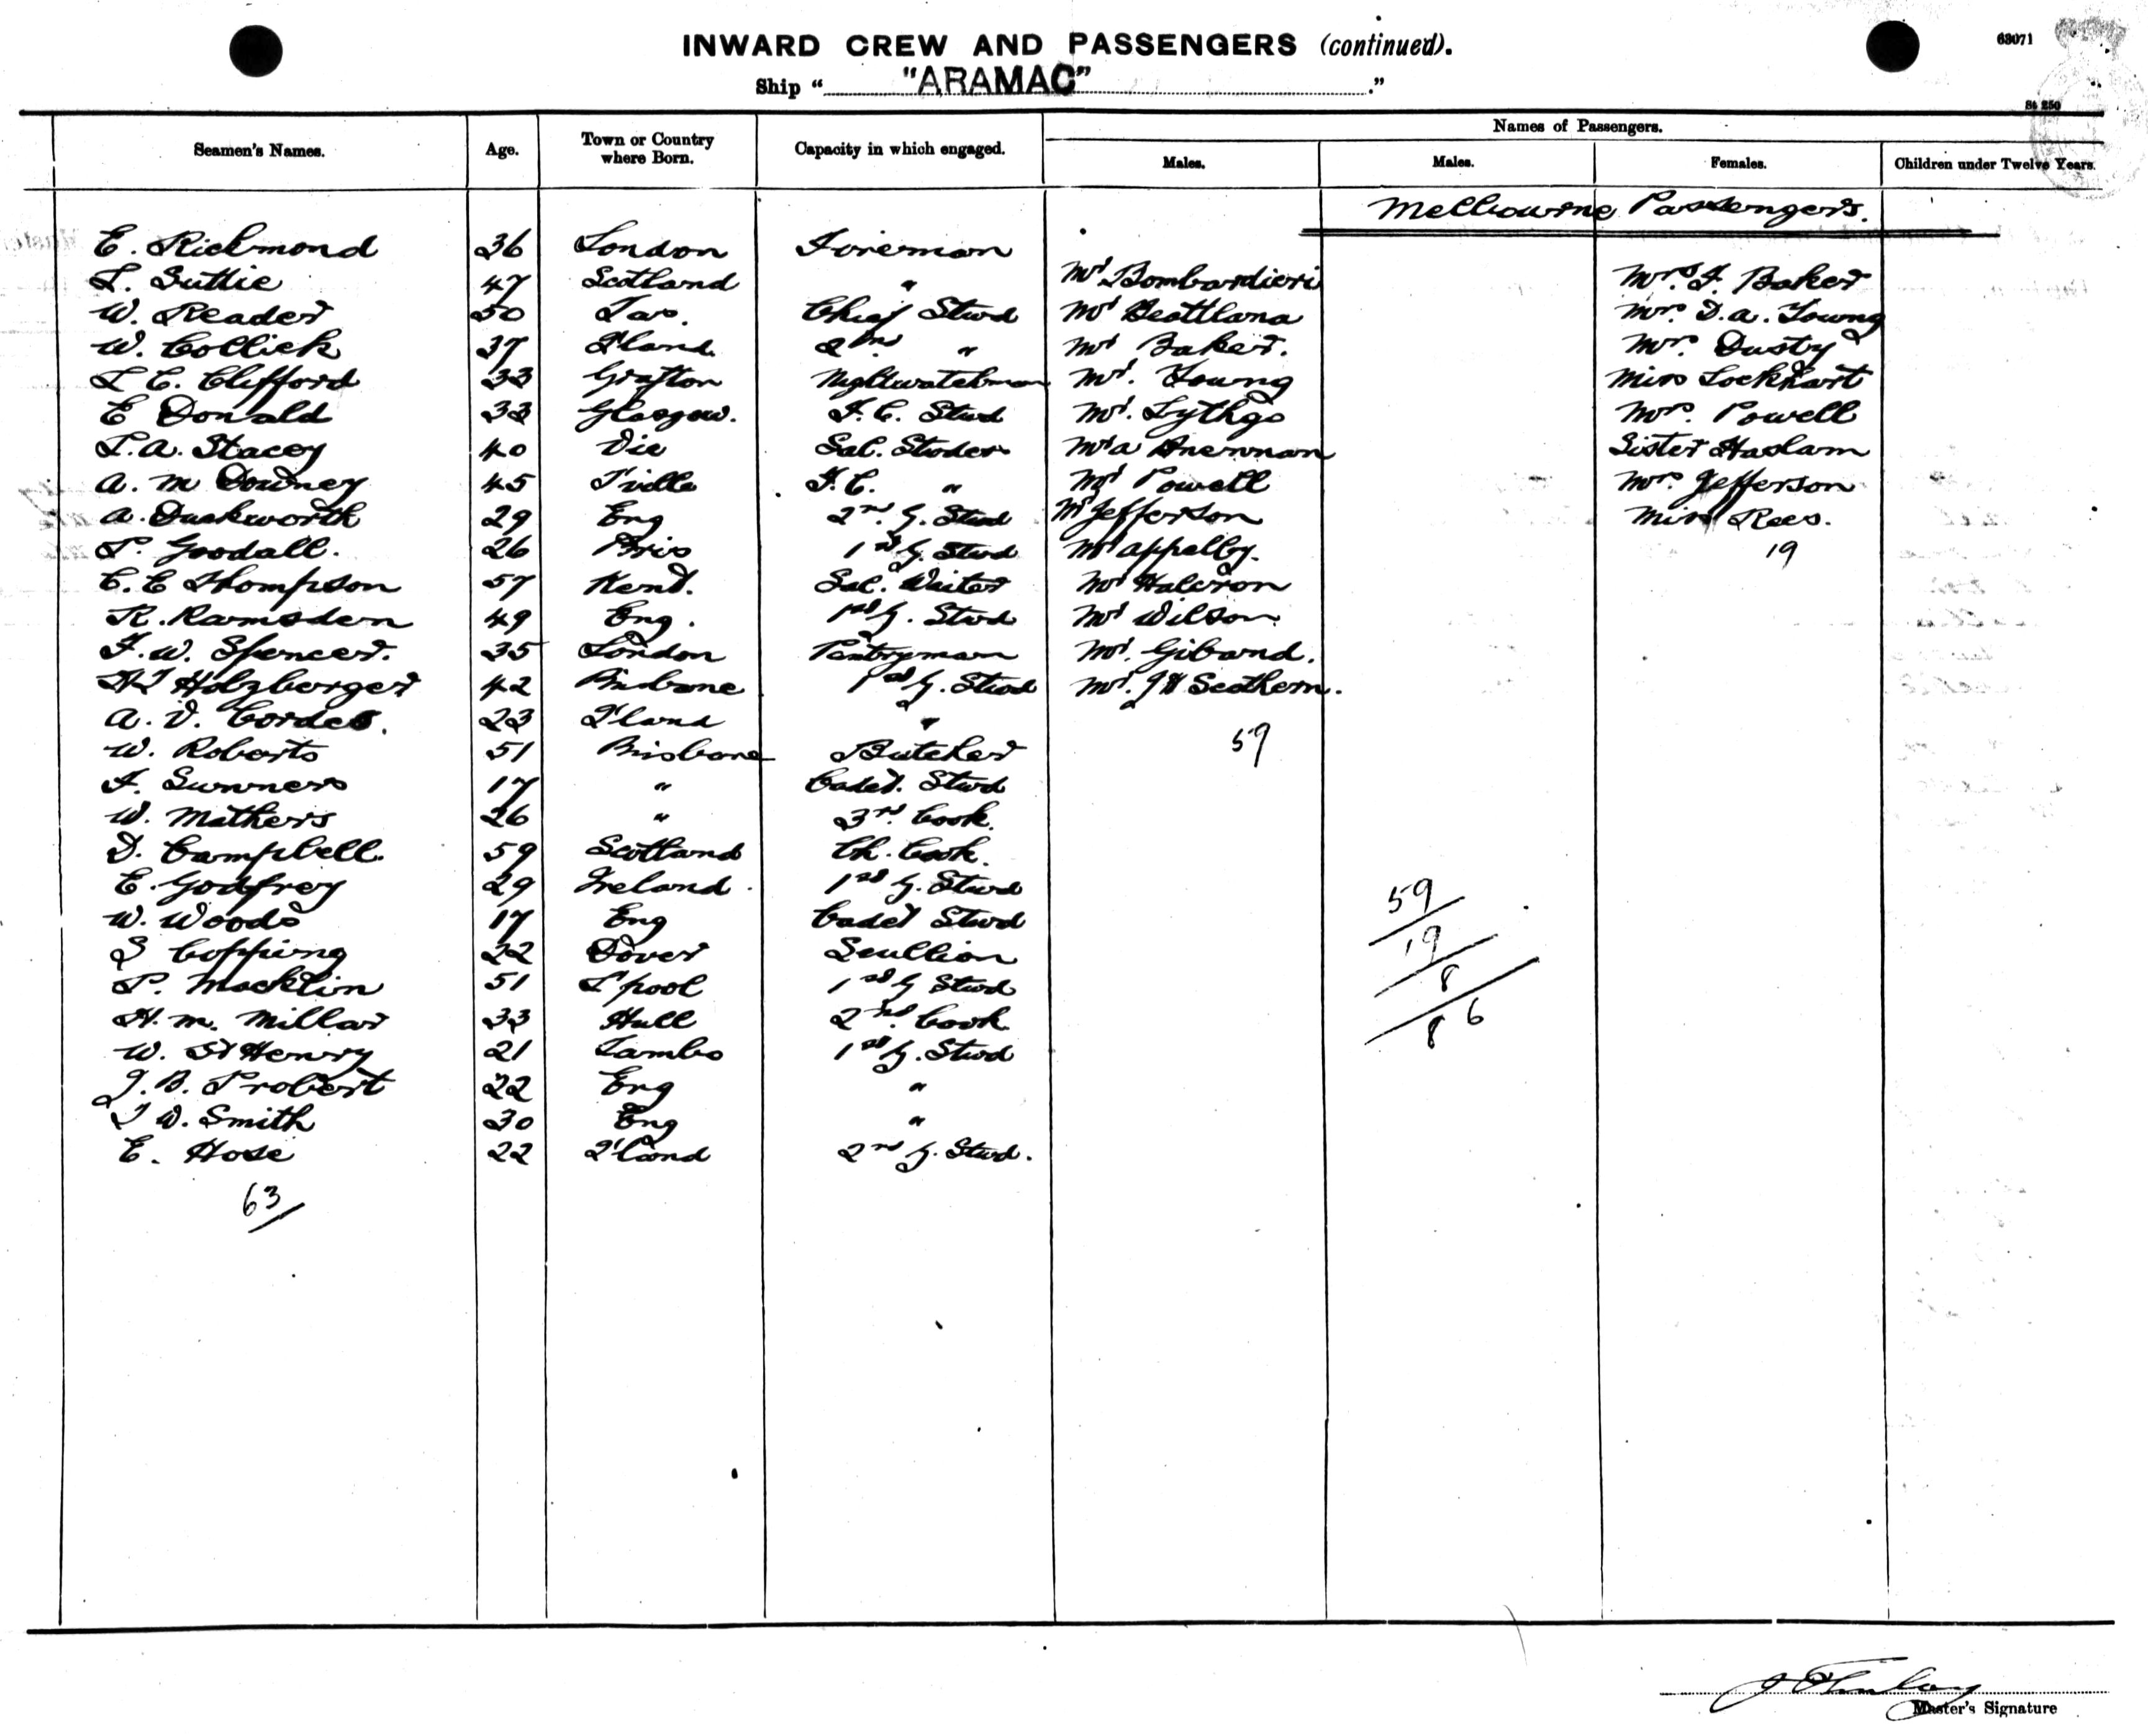 INWARD CREW AND PASSENGERS (continued).
63071
Ship " "ARAMAC" ."
St 250
Seamen's Names. Age. Town or Country where Born. Capacity in which engaged. Names of Passengers.
Males. Males. Females. Children under Twelve Years.
Melbourne Passengers.
E. Richmond 36 London Foreman
L. Suttie 47 Scotland " Mr. Bombardieri Mrs. F. Baker
W. Reader 50 Tas. Chief Stwd Mr Mrs. D. A. Young
W. Collick 37 Q'land 2nd " Mr Baker. Mrs. Dusty
L C. Clifford 33 Grafton Nightwatchman Mr. Young Miss Lockhart
E Donald 33 Glasgow. F. C. Stwd Mr. Lythgo Mrs. Powell
L. A. Stacey 40 Vic Sal. Mr A Sister Haslam
A. M Downey 45 T'ville F. C. " Mr Powell Mrs. Jefferson
A. Duckworth 29 Eng 2nd. G. Stwd Mr Jefferson Miss Rees.
P. Goodall. 26 Bris 1st G. Stwd Mr Appelby. 19
C. E Thompson 57 Kent. Sal. Waiter Mr Halcron
R. Ramsden 49 Eng. 1st G. Stwd Mr Wilson
F. W. Spencer. 35 London Pantryman Mr. Giband.
Holzberger 42 Brisbane 1st G. Stwd Mr. J H Scothern.
A. V. Cordes. 23 Q'land "
W. Roberts 51 Brisbane Butcher 59
F. Sumners 17 " Cadet. Stwd
W. Mathers 26 " 3rd. Cook.
D. Campbell. 59 Scotland Ch. Cook.
E. Godfrey 29 Ireland. 1st G. Stwd 59
W. Woods 17 Eng Cadet Stwd
S Copping 22 Dover Scullion 19
P. Macklin 51 L'pool 1st G Stwd 8
H. M. Millar 33 Hull 2nd. Cook. 86
W. St Henry 21 Tambo 1st G. Stwd
J. B. Probert 22 Eng "
W. Smith 30 Eng "
E. Hose 22 Q'land 2nd G. Stwd.
63
Master's Signature